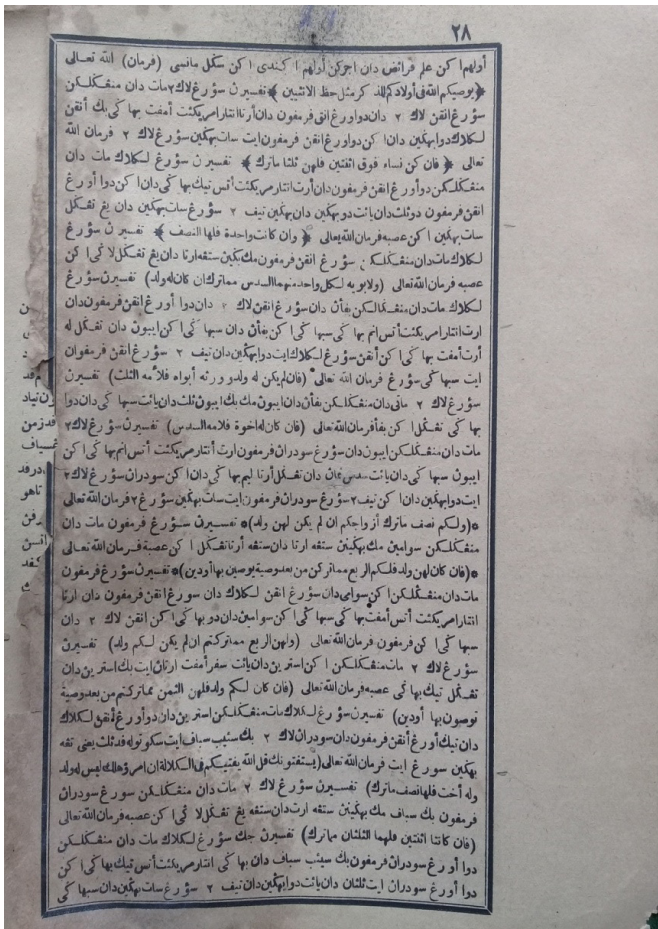 ٢٨
أولهم اكن علم فرائض دان اجوكن أولهم اكندي اكن سكل مانسي (فرمان) الله تعالى
﴿يوصيكم الله في أولادكم للذكر مثل حظ الانثيين﴾ تفسيرن سؤرغ لاك٢ مات دان منڠكلكن
سؤرغ انقن لاك ٢ دان دواورغ انق فرمفون دان أرتا انتارا مريكئت أمفت بهاكي بك أنقن
لكلاك دوا بهكين دان اكن دو اورغ انقن فرمفون ايت سات بهكين سؤرغ لاك ٢ فرمان الله
تعالى ﴿فان كن نساء فوق اثنتين فلهن ثلثا ماترك﴾ تفسيرن سؤرغ لكلاك مات دان
منڠكلكن دوأورغ انقن فرمفون دان أرت انتار مريكئت أتس تيك بهاكي دان اكن دوا أورغ
انقن فرمفون دو ثلث دان يائت دو بهكين دان بهكين تيف ٢ سؤرغ سات بهكين دان يغ تڠكل
سات بهكين اكن عصبه فرمان الله تعالى ﴿وان كانت واحدة فلها النصف﴾ تفسيرن سؤرغ
لكلاك مات دان منڠكلكن سؤرغ انقن فرمفون مك بكين ستڠه ارتا دان يغ تڠكل لاكي اكن
عصبه فرمان الله تعالى (ولابويه لكل واحد منهما السدس مماترك ان كان له ولد) تفسيرن سؤرغ
لكلاك مات دان منڠكلكن بفأن دان سؤرغ انقن لاك ٢ دان دوا أورغ انقن فرمفون دان
ارت انتارا مريكئت أتس انم بهاكي سبهاكي اكن بفأن دان سبهاكي اكن ايبون دان تڠكل له
أرت أمفت بهاكي اكن أنقن سؤرغ لكلاك ايت دوا بهكين دان تيف ٢ سؤرغ انقن فرمفوان
ايت سبهاكي سؤرغ فرمان الله تعالى (فان لم يكن له ولد وورثه أبواه فلأمه الثلث) تفسيرن
سؤرغ لاك ٢ ماتي دان منڠكلكن بفأن دان ايبون مك بك ايبون ثلث دان يائت سبهاكي دان دوا
بهاكي تڠكل اكن بفأ فرمان الله تعالى (فان كان له اخوة فلامه السدس) تفسيرن سؤرغ لاك٢
مات دان منڠكلكن ايبون دان سؤرغ سودران فرمفون ارت أنتار مريكئت أتس انم بهاكي اكن
ايبون سبهاكي دان يائت سدس دان تڠكل أرتا ليم بهاكي دان اكن سودران سؤرغ لاك٢
ايت دوا بهكين دان اكن تيف ٢ سؤرغ سودران فرمفون ايت سات بهكين سؤرغ ٢ فرمان الله تعالى
*(ولكم نصف ماترك أزواجكم ان لم يكن لهن ولد)* تفسيرن سؤرغ فرمفون مات دان
منڠكلكن سوامين مك بهكينن ستڠه ارتا دان ستڠه أرتا تڠكل اكن عصبة فرمان الله تعالى
*(فان كان لهن ولد فلكم الربع مماتركن من بعد وصية يوصين بها أودين)* تفسيرن سؤرغ فرمفون
مات دان منڠكلكن اكن سوامي دان سؤرغ انقن لكلاك دان سورغ انقن فرمفون دان ارتا
انتارا مريكئت أتس أمفت بهاكي سبهاكي اكن سوامين دان دو بهاكي اكن انقن لاك ٢ دان
سبهاكي اكن فرمفون فرمان الله تعالى (ولهن الربع مما تركتم ان لم يكن لكم ولد) تفسيرن
سؤرغ لاك ٢ مات منڠكلكن اكن استرين دان يائت سفر أمفت ارتان ايت بك استرين دان
تڠكل تيك بهاكي عصبه فرمان الله تعالى (فان كان لكم ولد فلهن الثمن مماتركتم من بعد وصية
توصون بها أودين) تفسيرن سؤرغ لكلاك مات منڠكلكن استرين دان دو أورغ أنقن لكلاك
دان تيك أورغ أنقن فرمفون دان سودران لاك ٢ بك سئيب سياف ايت سكوتو له قد ثلث يعني تڠه
بهكين سورغ ايت فرمان الله تعالى (يستفتونك قل الله يفتيكم في الكلالة ان امرؤ هلك ليس له ولد
وله أخت فلها نصف ماترك) تفسيرن سؤرغ لاك ٢ مات دان منڠكلكن سورغ سودران
فرمفون بك سياف مك بهكينن ستڠه ارت دان ستڠه يغ تڠكل لاكي اكن عصبه فرمان الله تعالى
(فان كانتا اثنتين فلهما الثلثان مماترك) تفسيرن جك سؤرغ لكلاك مات دان منڠكلكن
دوا أورغ سودران فرمفون بك سيئب سياف دان بهاكي انتار مريكئت أتس تيك بهاكي اكن
دوا أورغ سودران ايت ثلثان دان يائت دوا بهكين دان تيف ٢ سؤرغ سات بهكين دان سبهاكي